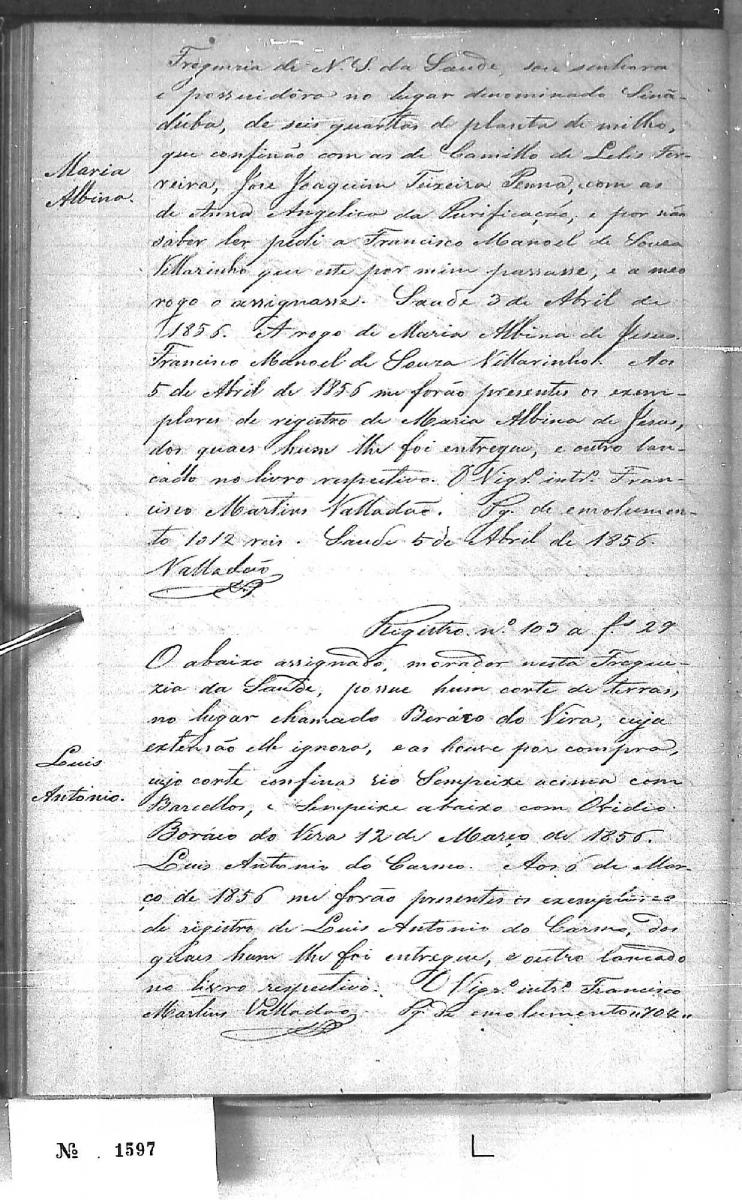 Freguezia de N. S. da Saude, sou senhora
e possuidôra no lugar denominado Siná-
dúba, de seis quartas de planta de milho,
que confinão com as de Camillo de Lelis Fer-
Maria
Albina.
reira, José Joaquim Teixeira Penna, com as
de Anna Angelica da Purificação, e por não
saber ler pedi a Francisco Manoel de Souza
Villarinho que este por mim passasse, e a meo
rogo o assignasse. Saude 3 de Abril de
1856. A rogo de Maria Albina de Jesus.
Francisco Manoel de Souza Villarinho. Aos
5 de Abril de 1856 me forão presentes os exem-
plares de registro de Maria Albina de Jesus,
dos quaes hum lhe foi entregue, e outro lan-
cado no livro respectivo. O Vigrº. intrº. Fran-
cisco Martins Valladão. Pg. de emolumen-
to 1012 reis. Saude 5 de Abril de 1856.
Valladão
Registro nº 103 a fs 29
O abaixo assignado, morador nesta Fregue-
zia da Saude, possue hum corte de terras,
no lugar chamado Boráco do Vira, cuja
extensão elle ignora, e as houve por compra,
Luis
Antonio.
cujo corte confina rio Sempeixe acima com
Barcellos, e Sempeixe abaixo com Ovidio.
Boráco do Vira 12 de Março de 1856.
Luis Antonio do Carmo. Aos 6 de Mar-
ço de 1856 me forão presentes os exemplares
de registro de Luis Antonio do Carmo, dos
quaes hum lhe foi entregue, e outro lancado
no livro respectivo. O Vigrº. intrº. Francisco
Martins Valladão. Pg. de emolumento
Nº . 1597